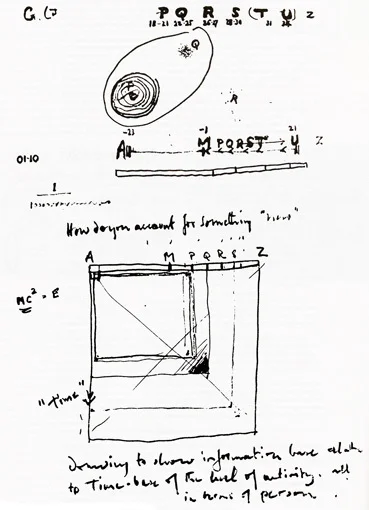 P Q R S (T U) Z
18-21 22-25
Q
P
R
-23 -3 21
A M PQRST U Z
01-10
1
How do you account for something "new"
A M P Q R S Z
MC² = E
"Time"
Drawing to show information base
to Time-base of the level of activity.
in terms of person.